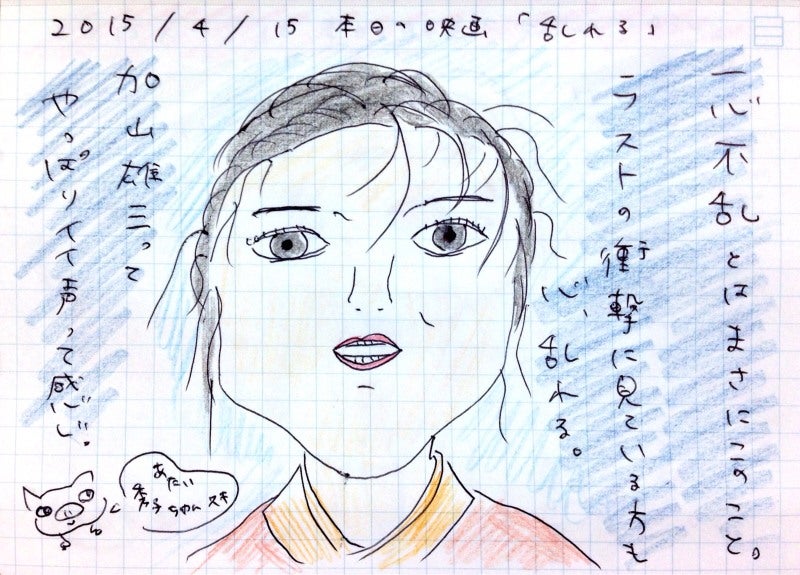 2015/4/15 本日の映画「乱れる」
一心不乱とはまさにこのこと。
ラストの衝撃に見ている方も
心、乱れる。
加山雄三って
やっぱりいい声って感じじ。
あたい
秀子ちゃん